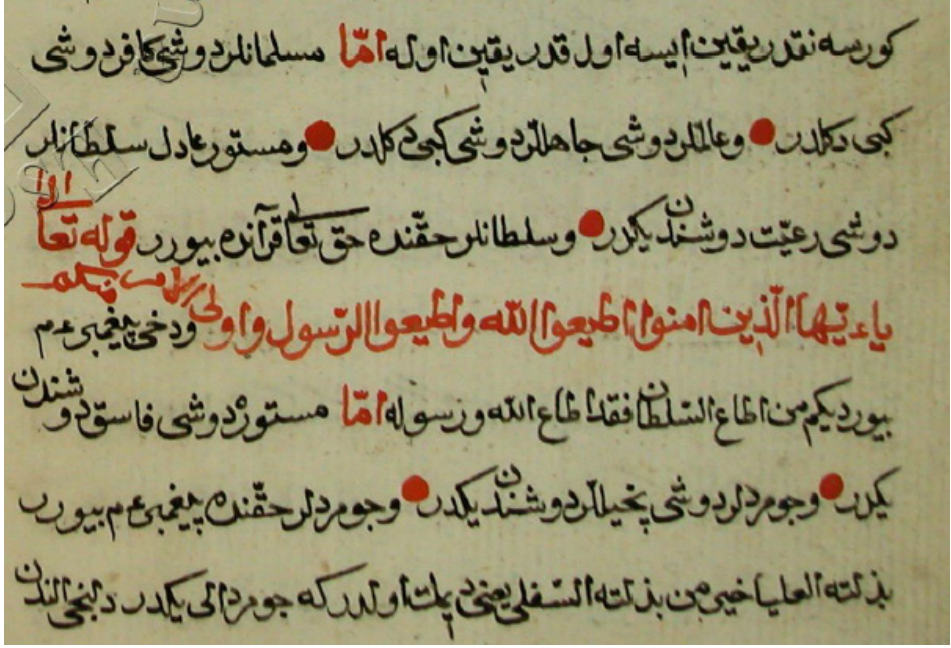 كورسه نقدر يقين ايسه اول قدر يقين اوله امّا مسلمانلر دوشى كافر دوشى
كبى دكلدر ● وعالملر دوشى جاهللر دوشى كبى دكلدر ● ومستور عادل سلطانلر
دوشى رعيّت دوشندن يكدر ● وسلطانلر حقّنده حق تعالى قرآنده بيورر قوله تعالى
ياءيّها الّذين امنوا اطيعوا الله واطيعوا الرّسول واولى الامر منكم ودخى پيغمبر ع م
بيورديكم من اطاع السّلطان فقد اطاع الله ورسوله امّا مستور دوشى فاسق دوشندن
يكدر ● وجومردلر دوشى بخيللر دوشندن يكدر ● وجومردلر حقّنده پيغمبر ع م بيورر
العليا من السّفلى يعنى اولدر كه جومرد الى يكدر